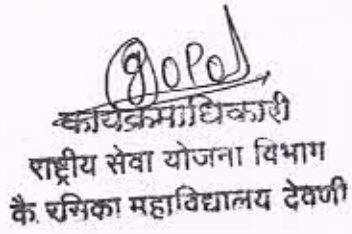 gopal
कार्यक्रमाधिकारी
राष्ट्रीय सेवा योजना विभाग
कै. रसिका महाविद्यालय देवणी